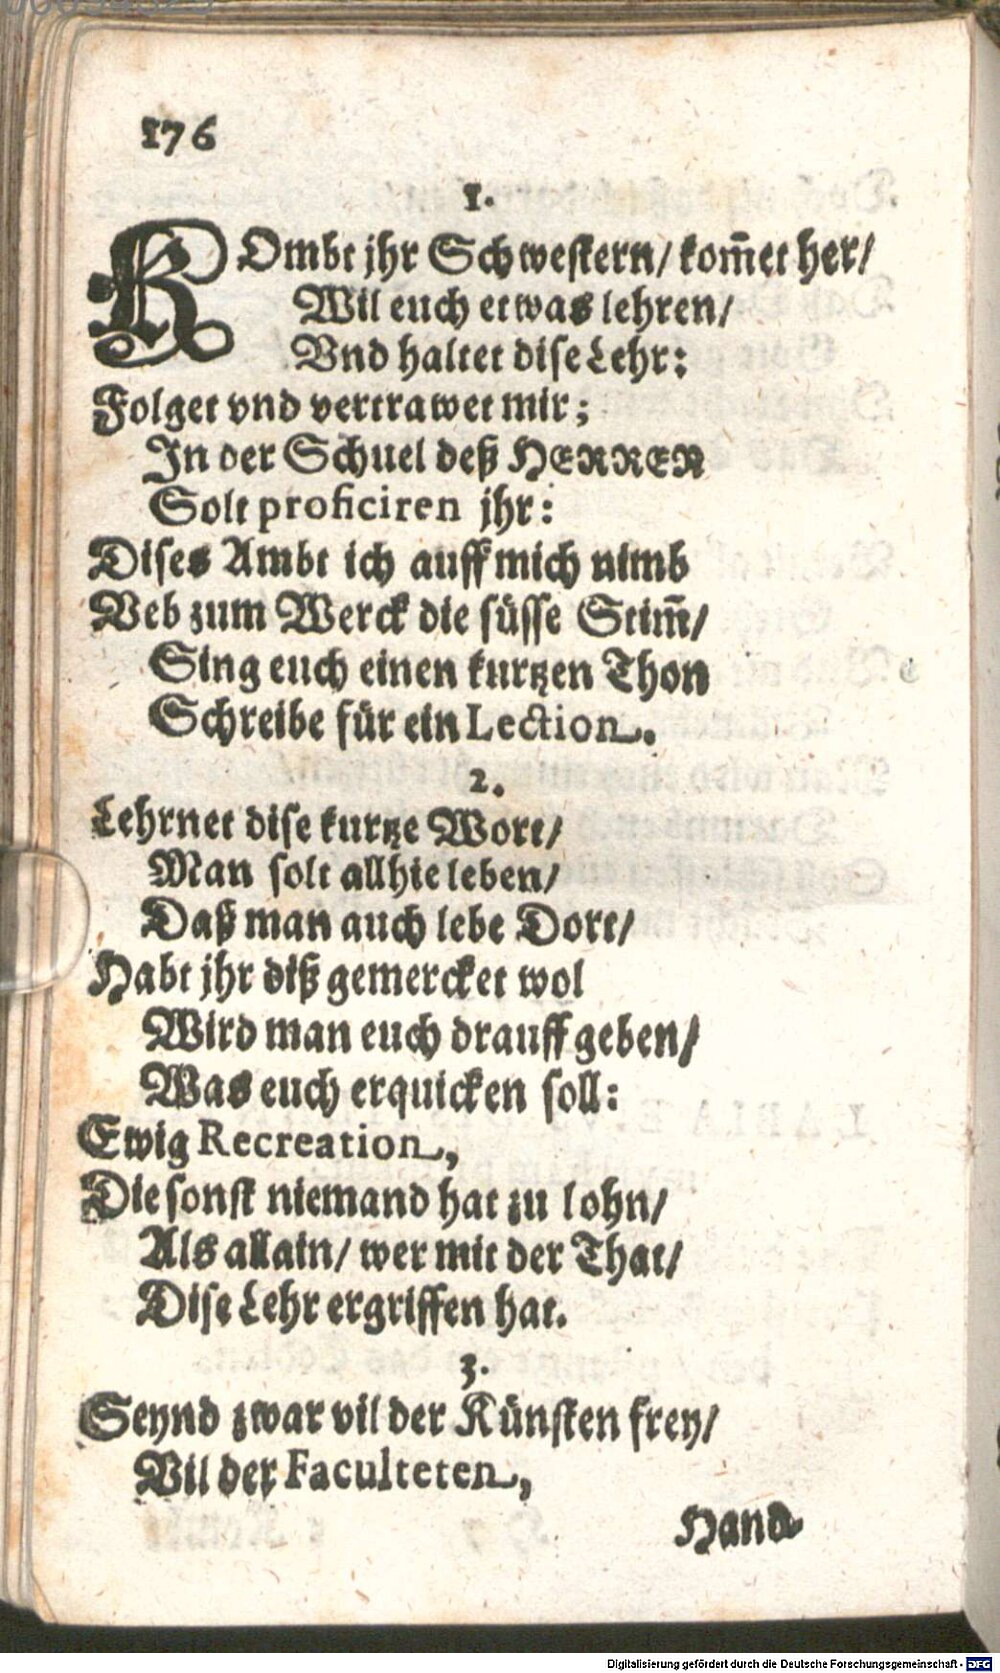 176
1.
KOmbt jhr Schwestern/ kom̃et her/
Wil euch etwas lehren/
Vnd haltet dise Lehr:
Folget vnd vertrawet mir;
In der Schuel deß HERREN
Solt proficiren jhr:
Dises Ambt ich auff mich nimb
Veb zum Werck die süsse Stim̃/
Sing euch einen kurtzen Thon
Schreibe für ein Lection.
2.
Lehrnet dise kurtze Wort/
Man solt allhie leben/
Daß man auch lebe Dort/
Habt jhr diß gemercket wol
Wird man euch drauff geben/
Was euch erquicken soll:
Ewig Recreation,
Die sonst niemand hat zu lohn/
Als allain/ wer mit der That/
Dise Lehr ergriffen hat.
3.
Seynd zwar vil der Künsten frey/
Vil der Faculteten,
Hand-
Digitalisierung gefördert durch die Deutsche Forschungsgemeinschaft - DFG